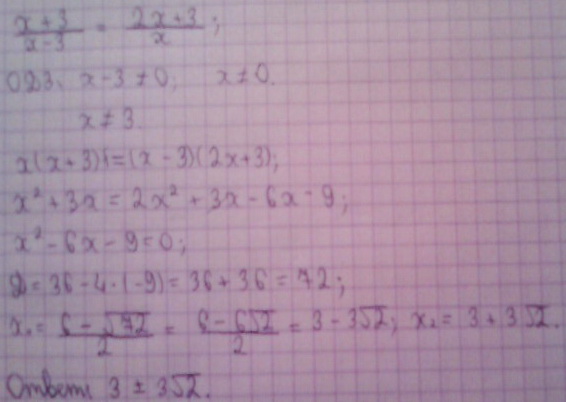 (x+3)/(x-3) = (2x+3)/x;
ОДЗ: x-3≠0; x≠0.
x≠3.
x(x+3)=(x-3)(2x+3);
x²+3x=2x²+3x-6x-9;
x²-6x-9=0;
D=36-4·(-9)=36+36=72;
x₁=(6-√72)/2=(6-6√2)/2=3-3√2; x₂=3+3√2.
Ответ: 3±3√2.